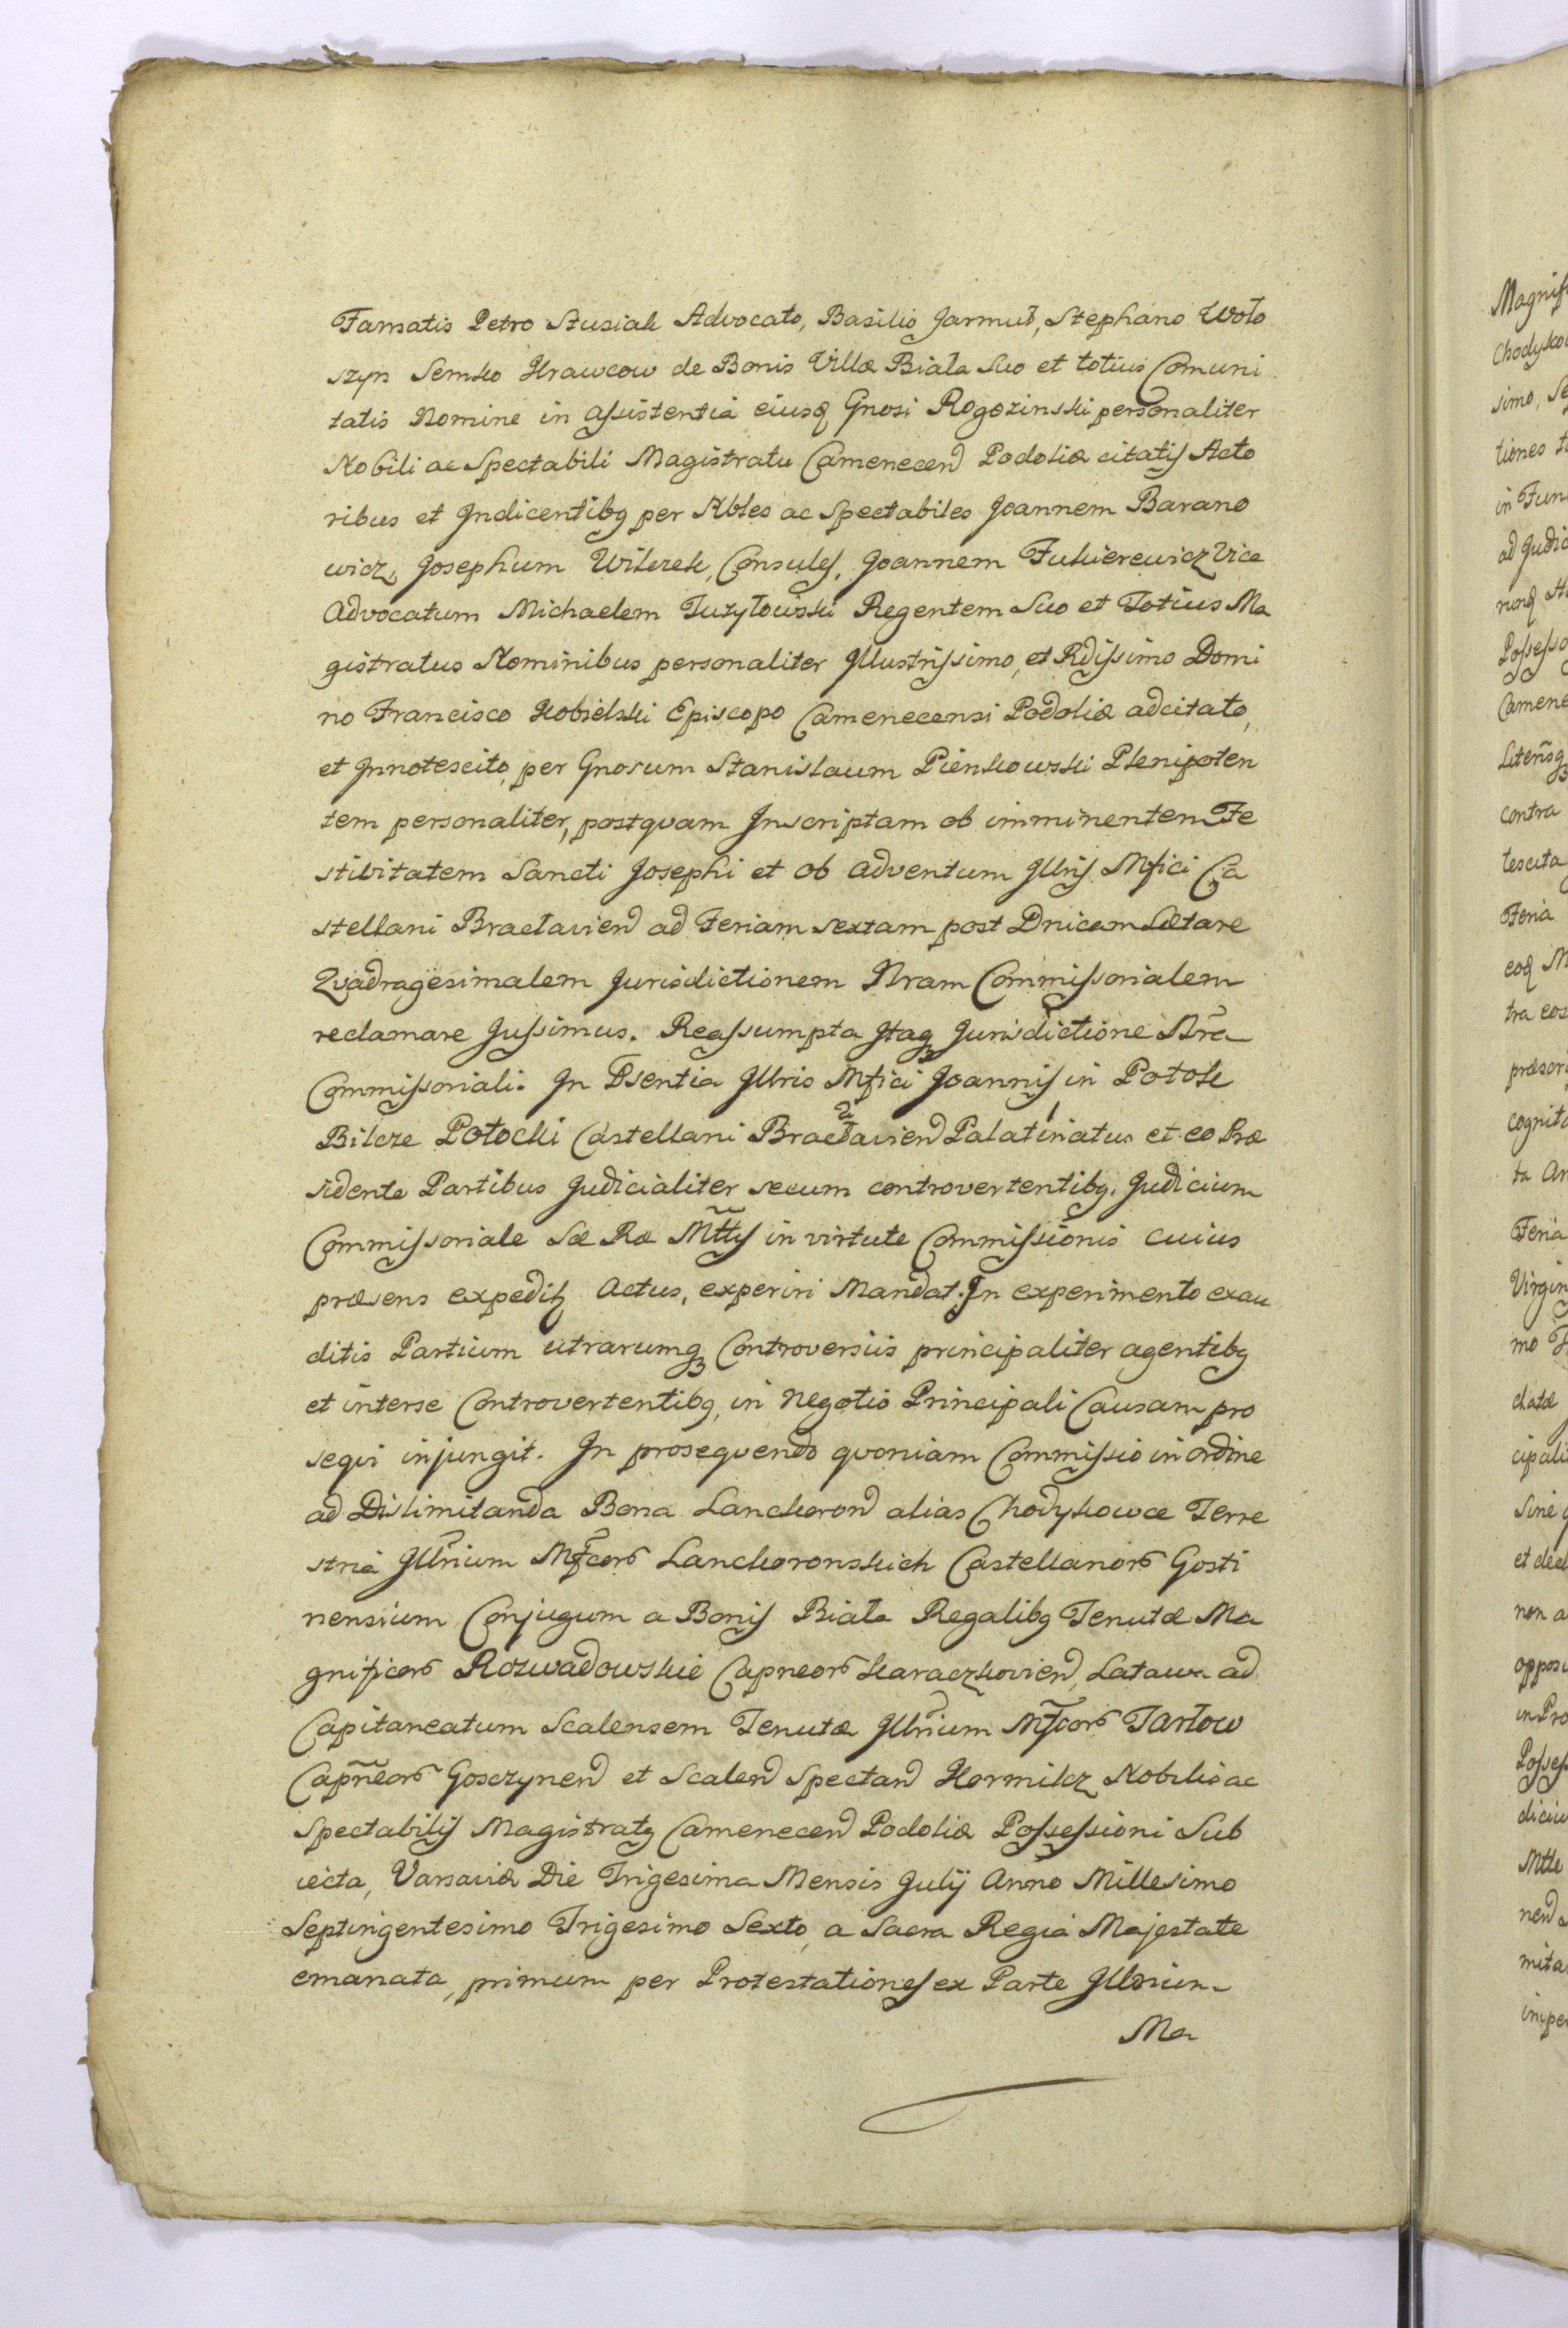 Famatis Petro Stusiak Advocato, Basilio Jarmuł, Stephano Woło
szyn Semko Krawcow de Bonis Villæ Biała Suo et totius Comuni
tatis Nomine in assistentia eiusq Gnosi Rogozinski personaliter
Nobili ac Spectabili Magistratu Camenecen Podoliæ citatis Acto
ribus et Indicentibq per Nbles ac Spectabiles Joannem Barano
wicz, Josephum Wilczek, Consules, Joannem Fukierewicz Vice
Advocatum Michaelem Tuzyłowski Regentem Suo et Totius Ma
gistratus Nominibus personaliter Illustrissimo, et Rdissimo Domi
no Francisco Kobielski Episcopo Camenecensi Podoliæ adcitato,
et Innotescito, per Gnosum Stanislaum Pieńkowski Plenipoten
tem personaliter, postqvam Inscriptam ob imminentem Fe
stivitatem Sancti Josephi et ob adventum Illris Mfici Ca
stellani Braclavien ad Feriam sextam post Dnicam Lætare
Qvadragesimalem Jurisdictionem Nram Commissorialem
reclamare Jussimus. Reassumpta Itaq Jurisdictione Nra
Commissoriali. In Psentia Illris Mfici Joannis in Potok
Bilcze Potocki Castellani Braclavien Palatinatus et eo Præ
sidente Partibus Judicialiter secum controvertentibq. Judicium
Commissoriale Sæ Ræ Mttis in virtute Commissionis cuius
præsens expeditq Actus, experiri Mandat. In experimento exau
ditis Partium utrarumq Controversiis principaliter agentibq
et interse Controvertentibq, in Negotio Principali Causam pro
seqvi injungit. In proseqvendo qvoniam Commissio in ordine
ad Dislimitanda Bona Lanckoron alias Chodykowce Terre
stria Illrium Mfcor Lanckoronskich Castellanor Gosti
nensium Conjugum a Bonis Biała Regalibq Tenutæ Ma
gnificor Rozwadowskie Capneor Karaczkovien, Latawa ad
Capitaneatum Scalensem Tenutæ Illrium Mfcor Tarłow
Capneor Gosczynen et Scalen Spectan Kormilcz Nobilis ac
Spectabilis Magistratq Camenecen Podoliæ Possessioni Sub
iecta, Varsaviæ Die Trigesima Mensis Julij Anno Millesimo
Septingentesimo Trigesimo Sexto, a Sacra Regia Majestate
emanata, primum per Protestationes ex Parte Illrium
Ma